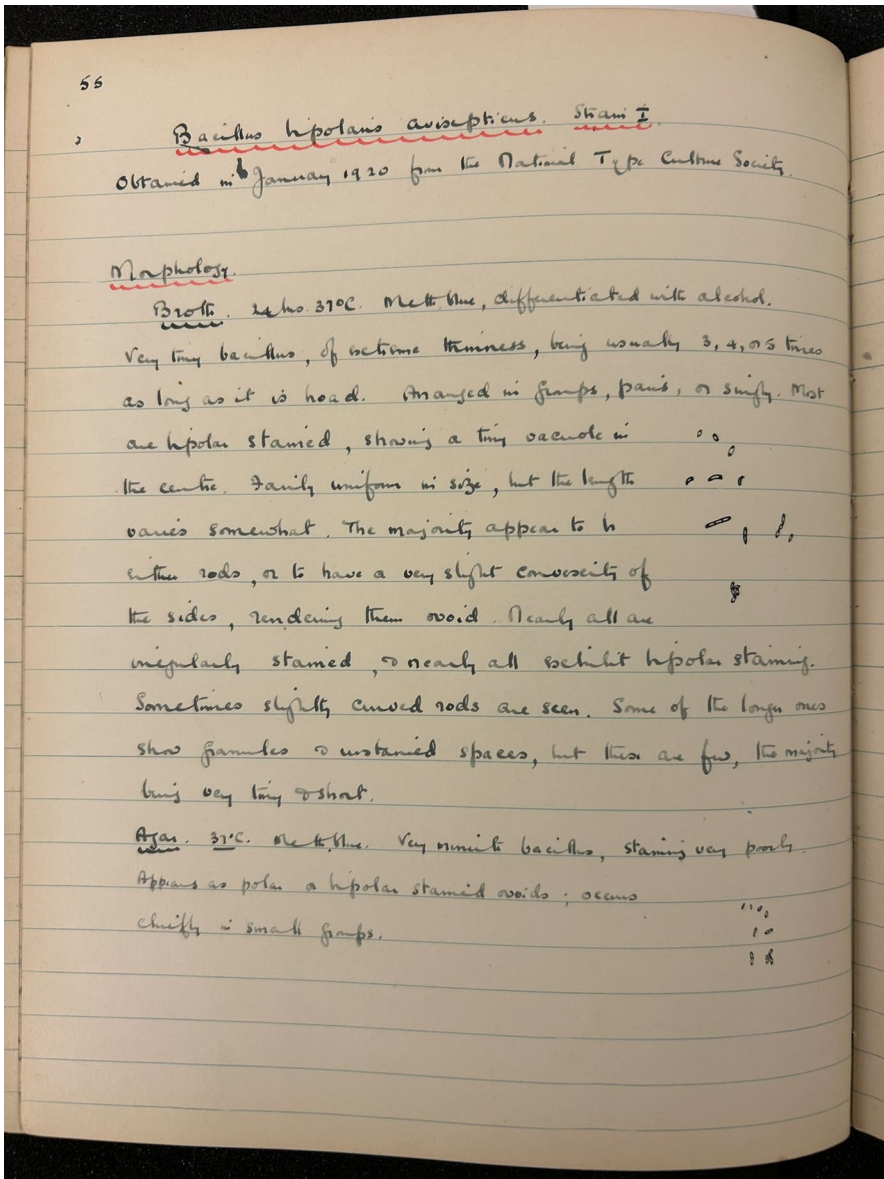 55
Bacillus bipolaris avisepticus. Strain I.
Obtained in January 1920 from the National Type Culture Society.
Morphology.
Broth. 24 hrs. 37°C. Meth. blue, differentiated with alcohol.
Very tiny bacillus, of extreme thinness, being usually 3, 4, or 5 times
as long as it is broad. Arranged in groups, pairs, or singly. Most
are bipolar stained, showing a tiny vacuole in
the centre. Fairly uniform in size, but the length
varies somewhat. The majority appear to be
either rods, or to have a very slight convexity of
the sides, rendering them ovoid. Nearly all are
irregularly stained, & nearly all exhibit bipolar staining.
Sometimes slightly curved rods are seen. Some of the longer ones
show granules & unstained spaces, but these are few, the majority
being very tiny & short.
Agar. 37°C. Meth. blue. Very minute bacillus, staining very poorly.
Appears as polar or bipolar stained ovoids; occurs
chiefly in small groups.